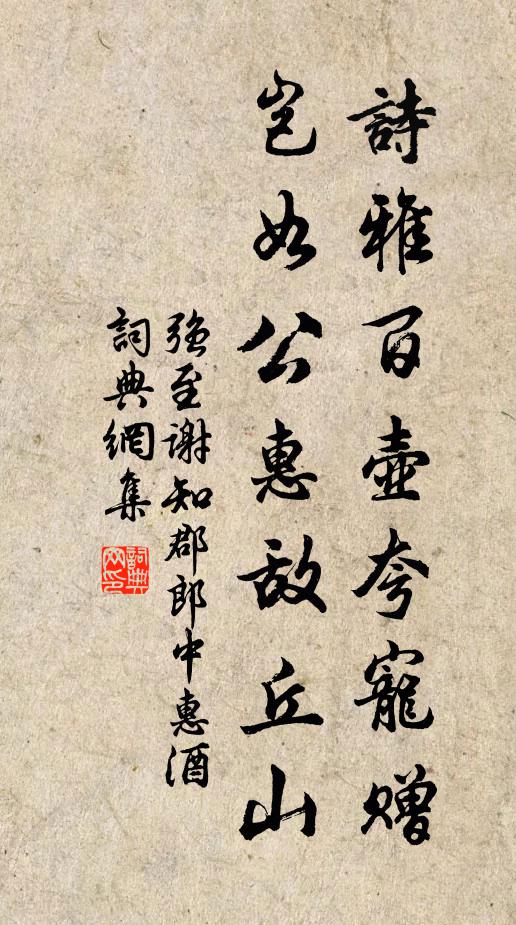 詩雅百壺夸寵贈
豈如公惠敵丘山
強至謝知郡郎中惠酒
詞典網集
詞典网印